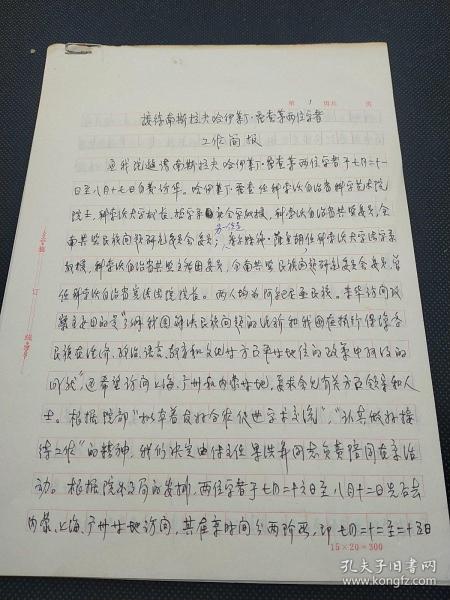 第 1 页共 页
接待南斯拉夫哈伊莱丁·霍查等两位学者
工作简报
应我院邀请南斯拉夫哈伊莱丁·霍查等两位学者于七月二十一
日至八月十七日自费访华。哈伊莱丁·霍查任科索沃自治省科学艺术院
院士,科索沃大学校长,哲学系社会学教授,科索沃自治省共盟委员,全
南共盟民族问题研究委员会委员;
另一位是
任科索沃大学法学系
教授,科索沃自治省共盟主席团委员,全南共盟民族问题研究委员会委员,曾
任科索沃自治省宪法法院院长。两人均为阿尔巴尼亚民族。来华访问及
主要目的是"了解我国解决民族问题的经验和我国在执行保障各
民族在经济、政治、语言、教育和文化等方面平等地位的政策中取得的
成就"还希望访问上海、广州和内蒙等地,要求会见有关方面领导和人
士。根据院部"本着友好合作促进学术交流","认真做好接
待工作"的精神,我们决定由
同志负责陪同在京活
动。根据院外事局的安排,两位学者于七月二十六日至八月十二日先后去
内蒙、上海、广州等地访问,其在京时间分两阶段,即七月二十二至二十五日
15×20=300
装
订
线
孔夫子旧书网